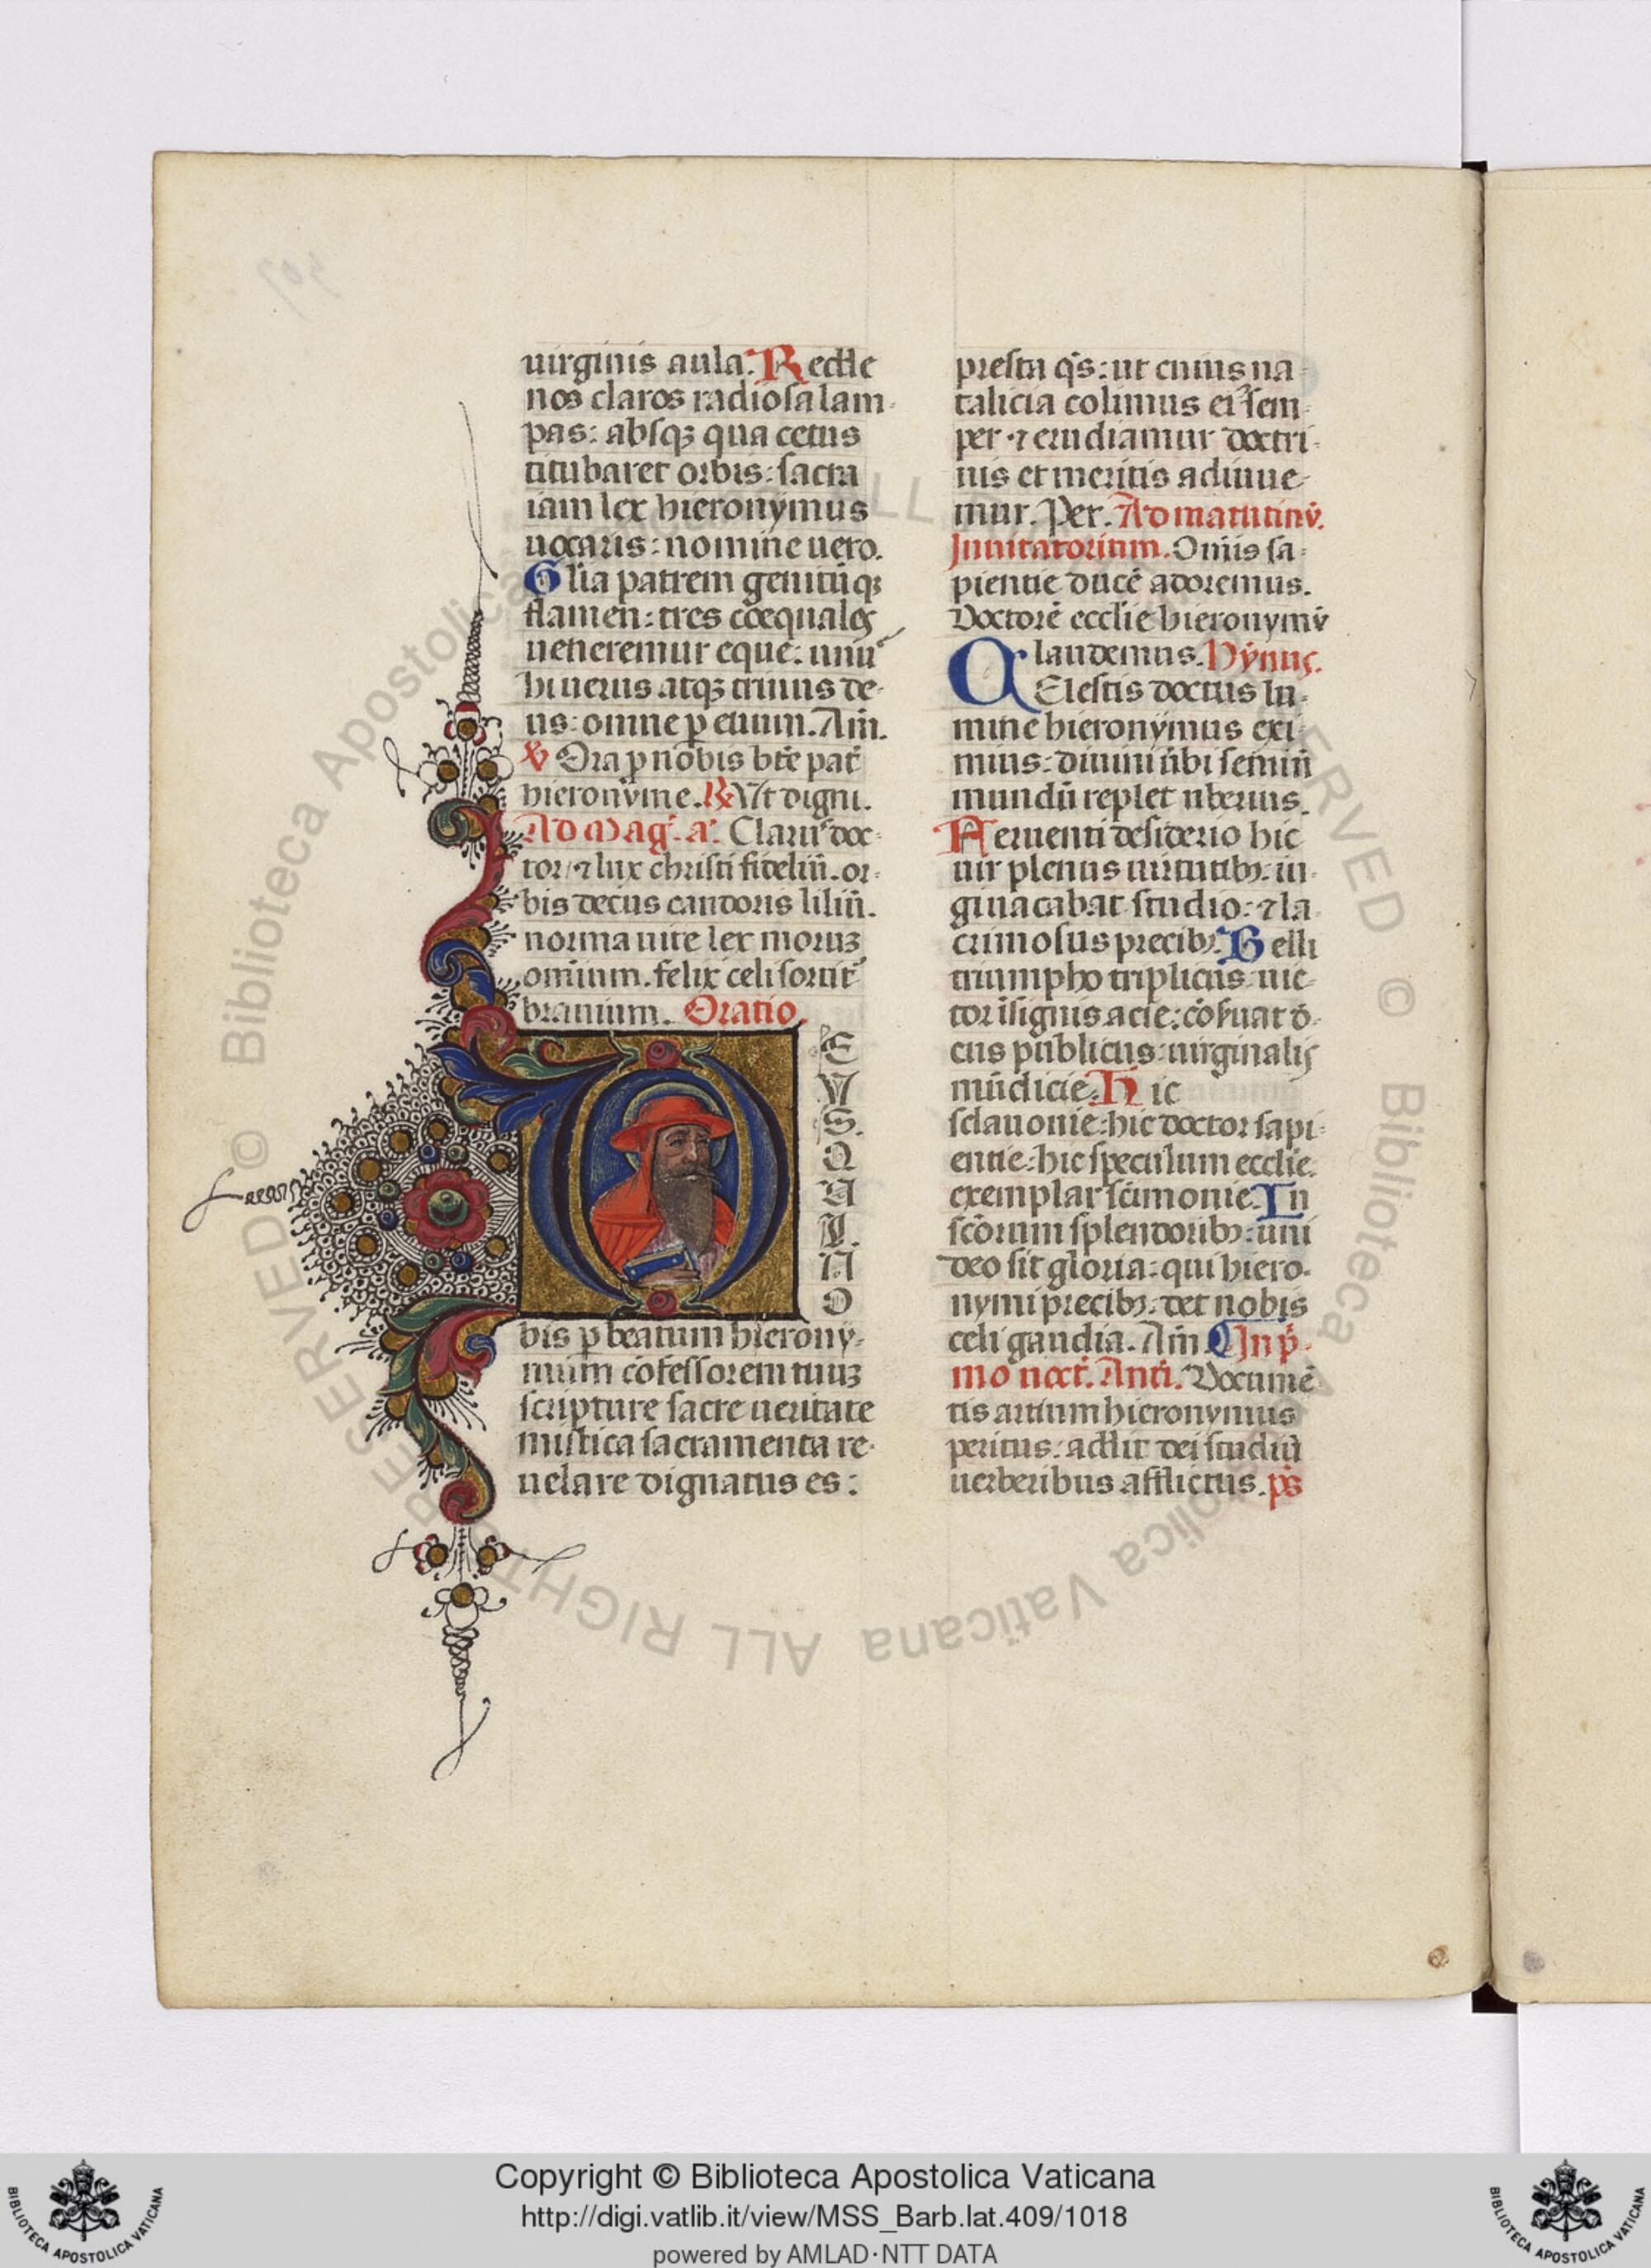 uirginis aula. Recte
nos claros radiosa lam-
pas: absqꝫ qua cetus
titubaret orbis: sacra
iam lex hieronymus
uocaris: nomine uero.
Glia patrem genitūqꝫ
flamen: tres coequales
ueneremur eque: unū
hi uerus atqꝫ trinus de-
us: omne ꝑ euum. Am̄.
℣ Ora ꝓ nobis btē pat̄
hieronyme. ℟ Vt digni.
Ad Mag. a. Clarus doc-
tor ⁊ lux christi fideliū. or-
bis decus candoris liliū.
norma uite lex moruꝫ
omīum. felix celi sortit̄
brauium. Oratio
DEVS. QVI. NO
bis ꝑ beatum hierony-
mum cōfessorem tuuꝫ
scripture sacre ueritate
mistica sacramenta re-
uelare dignatus es:
presta q̄s: ut cuius na-
talicia colimus eiꝰ sem-
per ⁊ erudiamur doctri-
nis et meritis adiuue-
mur. Per. Ad matutinū.
Inuitatorium. Omīs sa-
pientie ducē adoremus.
Doctorē ecclie hieronymū
laudemus. Hymus.
CElestis doctus lu-
mine hieronymus exi-
mius: diuini ūbi seminī
mundū replet uberius.
Feruenti desiderio hic
uir plenus uirtutibꝫ: in-
giua cabat studio: ⁊ la-
crimosus precibꝫ. Belli
triumpho triplicis uic-
tor īsignis acie: cōsuat d-
cus publicus: uirginalis
mūdicie. Hic
sclauonie: hic doctor sapi-
entie: hic speculum ecclie.
exemplar scīmonie. In
scōrum splendoribꝫ: uni
deo sit gloria: qui hiero-
nymi precibꝫ: det nobis
celi gaudia. Am̄. In p̄-
mo noct. Ant. Documē-
tis artium hieronymus
peritus: addit dei studiū
uerberibus afflictus. ps
© Biblioteca Apostolica Vaticana ALL RIGHTS RESERVED
Copyright © Biblioteca Apostolica Vaticana
http://digi.vatlib.it/view/MSS_Barb.lat.409/1018
powered by AMLAD·NTT DATA
BIBLIOTECA APOSTOLICA VATICANA
BIBLIOTECA APOSTOLICA VATICANA